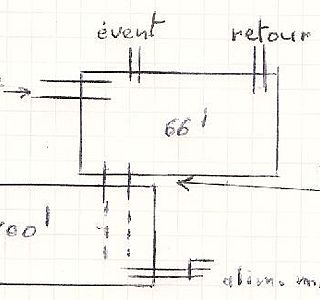 évent
retour
66 l
00 l
alim. m.